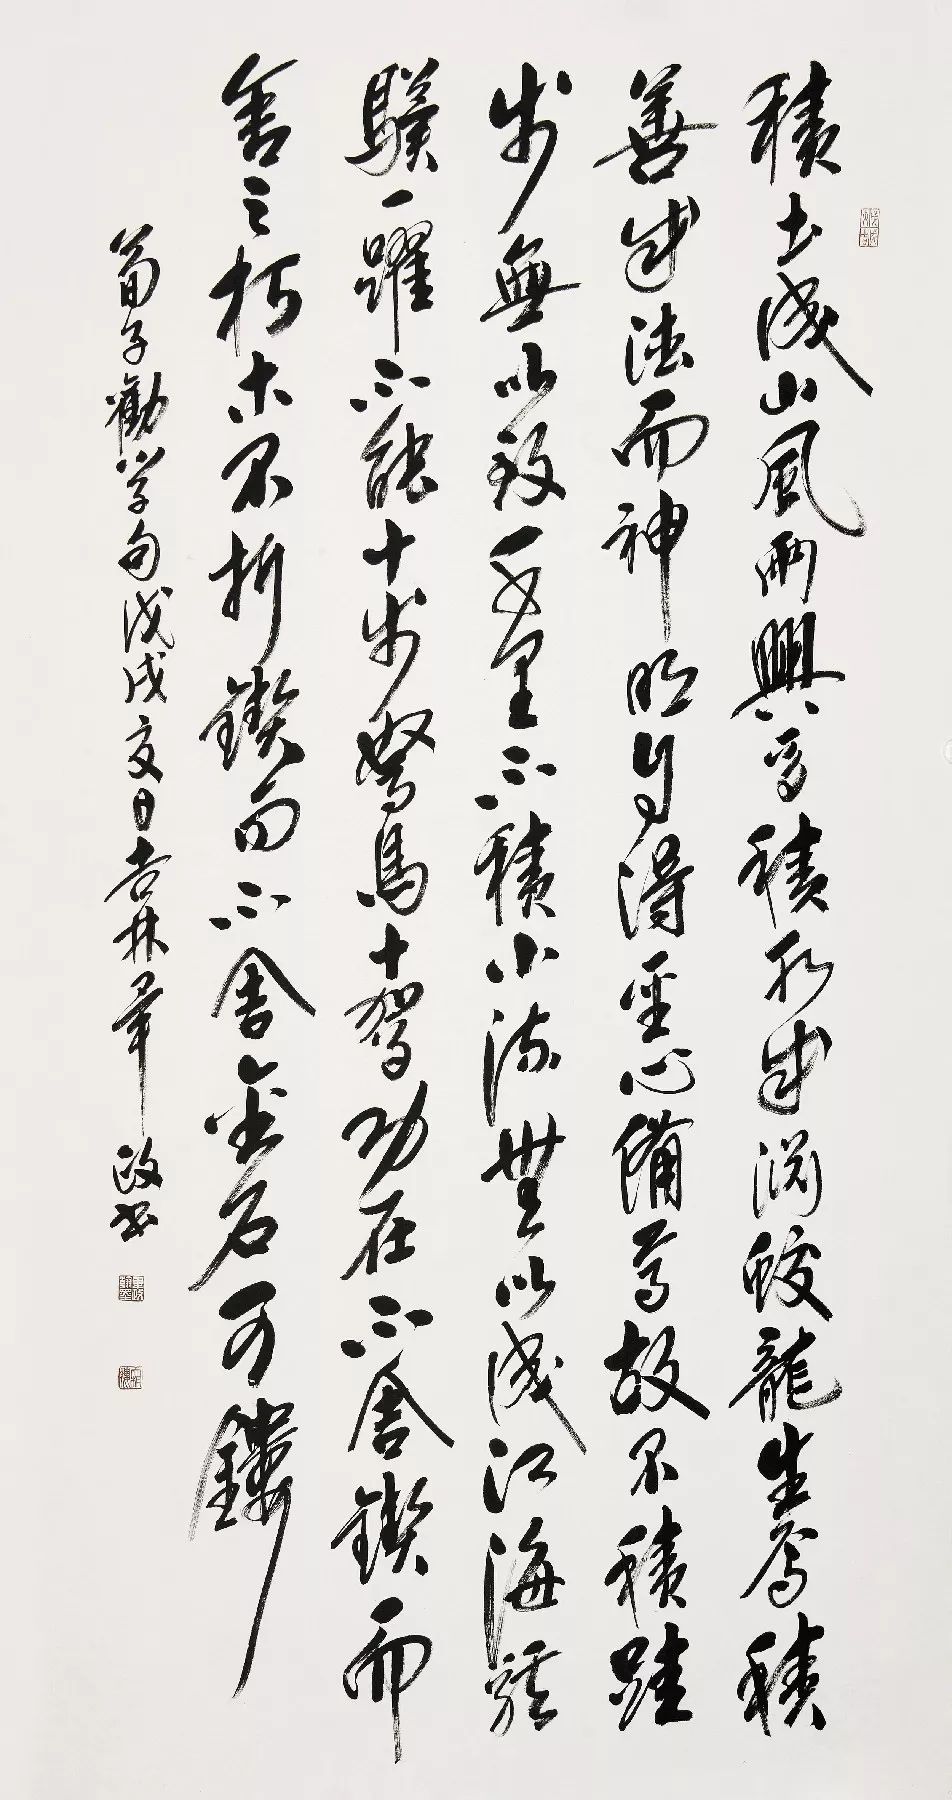 積土成山風雨興焉積水成淵蛟龍生焉積
善成德而神明自得聖心備焉故不積跬
步無以致千里不積小流無以成江海騏
驥一躍不能十步駑馬十駕功在不舍鍥而
舍之朽木不折鍥而不舍金石可鏤
荀子勸学句戊戌夏日吉林畢政书